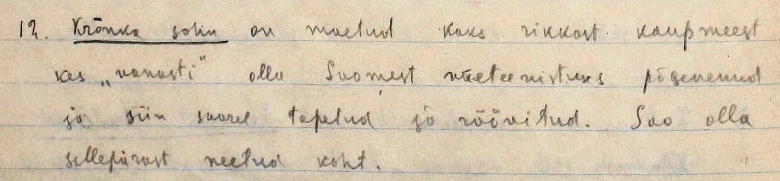 12. Krõnka sohu on maetud kaks rikkast kaupmeest
kes „vanasti" olla Soomest väeteenistuses põgenenud
ja siin saarel tapetud ja röövitud. Soo olla
sellepärast neetud koht.